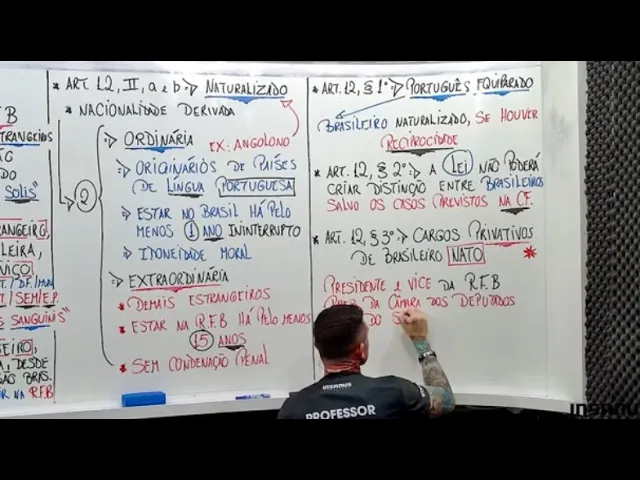 F B
TRANGEIROS
ÃO
DO
SOLIS"
RANGEIRO,
LEIRA,
VIÇO
T./D.F./MUN
I/SEM/E.P.
SANGUINIS"
EIRO,
A, DESDE
SÃO BRAS.
R NA R.F.B
* ART. 12, II, a e b → NATURALIZADO
* NACIONALIDADE DERIVADA
2
→ ORDINÁRIA EX: ANGOLANO
→ ORIGINÁRIOS DE PAÍSES
DE LÍNGUA PORTUGUESA
→ ESTAR NO BRASIL HÁ PELO
MENOS 1 ANO ININTERRUPTO
→ IDONEIDADE MORAL
→ EXTRAORDINÁRIA
DEMAIS ESTRANGEIROS
ESTAR NA R.F.B HÁ PELO MENOS
15 ANOS
SEM CONDENAÇÃO PENAL
* ART. 12, § 1º → PORTUGUÊS EQUIPARADO
BRASILEIRO NATURALIZADO, SE HOUVER
RECIPROCIDADE
* ART. 12, § 2º → A LEI NÃO PODERÁ
CRIAR DISTINÇÃO ENTRE BRASILEIROS
SALVO OS CASOS PREVISTOS NA CF.
* ART. 12, § 3º → CARGOS PRIVATIVOS
DE BRASILEIRO NATO *
PRESIDENTE e VICE DA R.F.B
PRES. DA CÂMARA DOS DEPUTADOS
DO S
INSANUS
PROFESSOR